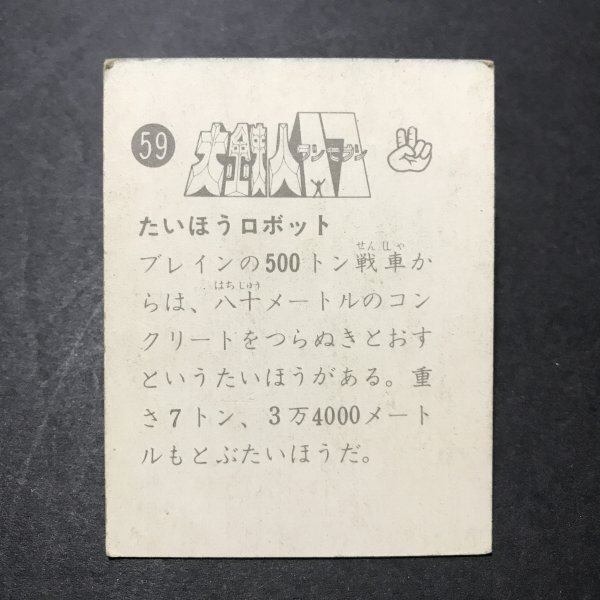 59
大鉄人17
ワンセブン
たいほうロボット
せんしゃ
ブレインの500トン戦車か
はちじゅう
らは、八十メートルのコン
クリートをつらぬきとおす
というたいほうがある。重
さ7トン、3万4000メート
ルもとぶたいほうだ。